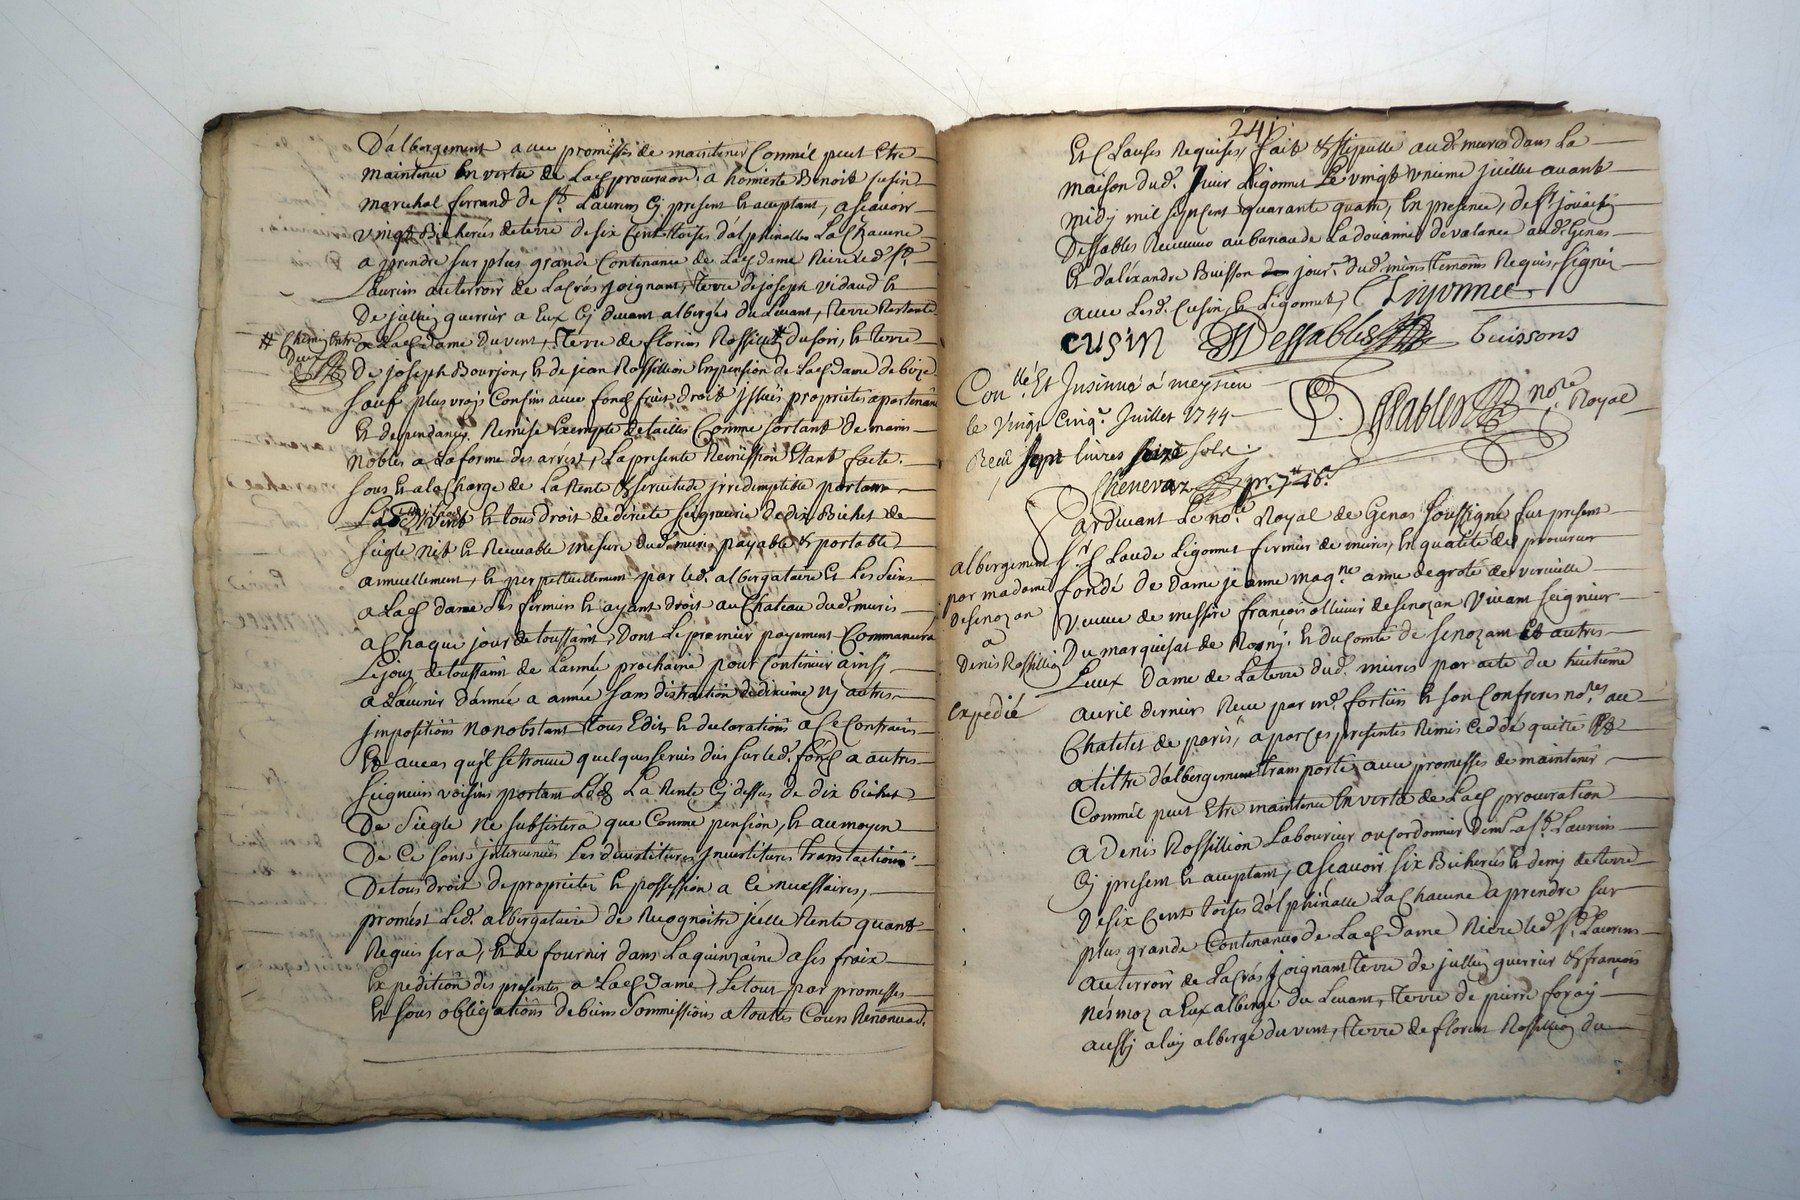 D'albergement avec promesses de maintenir Comme il peut Etre
maintenu En vertu de Lad procuraôn. a honneste Benoit Cusin
marechal ferrand de St. Laurens Cy present et acceptant, ascavoir
vingt Bicherées de terre de six Cent toises d'alphinalles La Chacune
a prendre sur plus grande Contenance de Lad dame Riere Led St.
Laurens au terroir de La Cras joignant, Terre de joseph vidaud et
De jullien guerrier a Eux Cy devant albergés du Levant, terre Restante
# chemin Entre
Deux
a Lad dame Du vent, Terre de florins Rossillion # du soir, et terre
De joseph Bourjon, et de jean Rossillion En pension de Lad dame de bize
sauf plus vrays Confins avec fond fruit droit issües proprietés apartenan
Et dependances. Remise Exempte de tailles Comme sortant de mains
Nobles a La forme des arrest, La presente Remission Etant faite
sous et a la Charge de La Rente & servitude jrredimptible portant
Lods et vent et tous droit de directe seigneurie de dix Bichet de
siegle Net et Recevable mesure dud. muris payable & portable
annuellement, et perpetuellement par led. albergataire et Les siens
a Lad dame Ses fermiers et ayant droit au Chateau dud. muris
a Chaque jour de toussaint, Dont Le premier payement Commancera
Le jour de toussaint de L'année prochaine pour Continuer ainsy
a L'avenir d'année a année sans distraction de dixieme ny autres
jmpositions Nonobstant tous Edits et declarations a Ce Contraires
Et au cas qu'il se trouve quelques servis dûs sur led. fond a autres
seigneurs voisins portant Lods La Rente Cy dessus de dix bichet
De siegle Ne subsistera que Comme pension, et au moyen
De Ce sont intervenües Les devestitures Jnvestitures translations
De tous droit de proprieter et possession a Ce necessaires,
promest Led. albergataire de Recognoitre jcelle Rente quant
Requis sera, et de fournir dans La quinzaine a ses fraix
Expeditiôn des presentes a Lad Dame, Le tout par promesses
Et sous obligations de biens sommissions a toutes Cours Renonciaô.
241
Et Clauses Requises, fait & stipullé aud. mures dans La
maison dud. sieur Ligonnet Le vingt vnieme juillet avant
midy mil sept cent quarante quatre, En presence, de Sr. joachin
Dessables Receveur au bureau de La douanne de valence aud. Genas
Et d'alexandre Buisson jour. dud. mures temoins Requis, signés
avec Lesd. Cusin, et Ligonnet,
Ligonnet
cusin Dessables buissons
Conllé. Et Jnsinué a meysieu
le Vingt Cinq. Juillet 1744
Receu sept livres seize sols
Chenevaz
Dessables nore. Royal
Pardevant Le nore. Royal de Genas soussigné fut present
Sr. Claude Ligonnet fermier de mures, En qualité de procureur
albergement
par madame
de senozan
a
Denis Rossillion
Expedié
fondé de Dame jeanne magne. anne de grolé de virville
veuve de messire françois ollivier de senozan Vivant seigneur
Du marquisat de Rosny. Et du Comté de senozant et autres
Lieux Dame de La terre dud. mures par acte du huitieme
avril dernier Reçu par me. fortier et son Confreres nores. au
Chatelet de paris, a par Ces presentes Remis Ceddé quitté et
a tittre d'albergement transporté avec promesses de maintenir
Comme il peut Etre maintenu En vertu de Lad procuration
a Denis Rossillion Laboureur ou Cordonnier dem. a St. Laurins
Cy present et acceptant, ascavoir six Bicherées et demy de terre
De six Cent toises d'alphinalle La Chacune a prendre sur
plus grande Contenance de Lad Dame Riere led St. Laurens
au terroir de La Cras joignant Terre de jullien guerrier & françois
Nesmoz a Eux albergé du Levant, Terre de pierre foray
aussy a luy albergé du vent, terre de florins Rossillion du